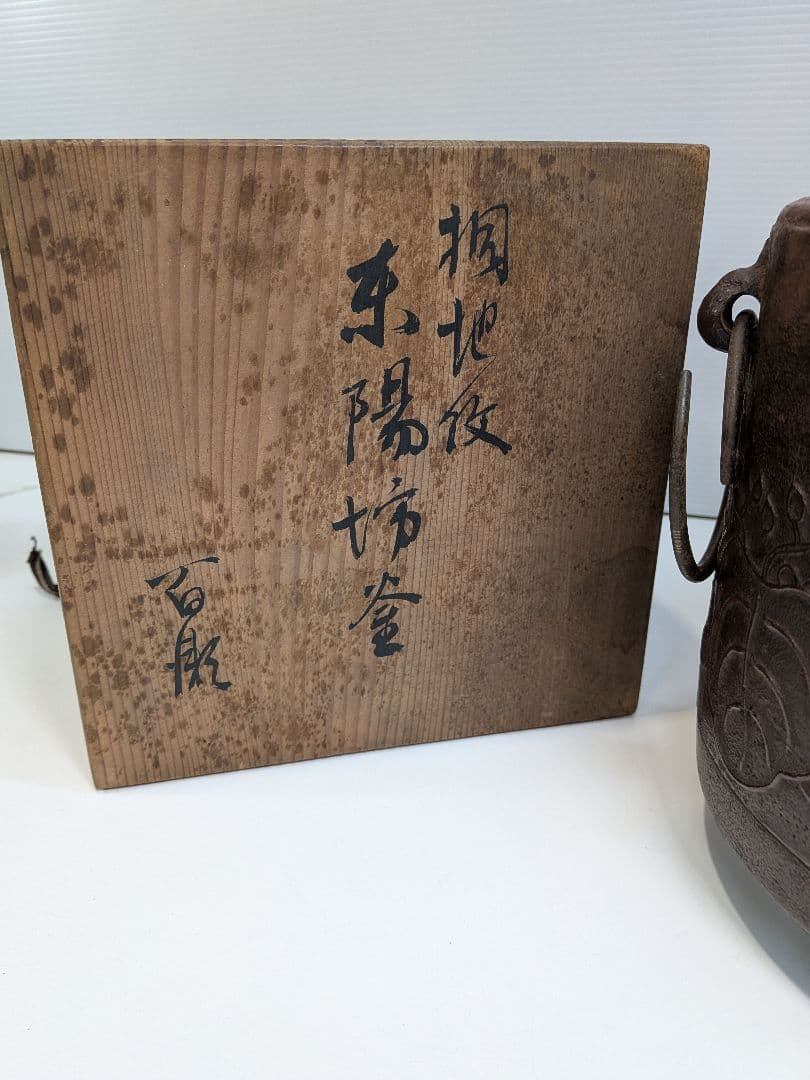 桐地紋
東陽坊釜
百彫